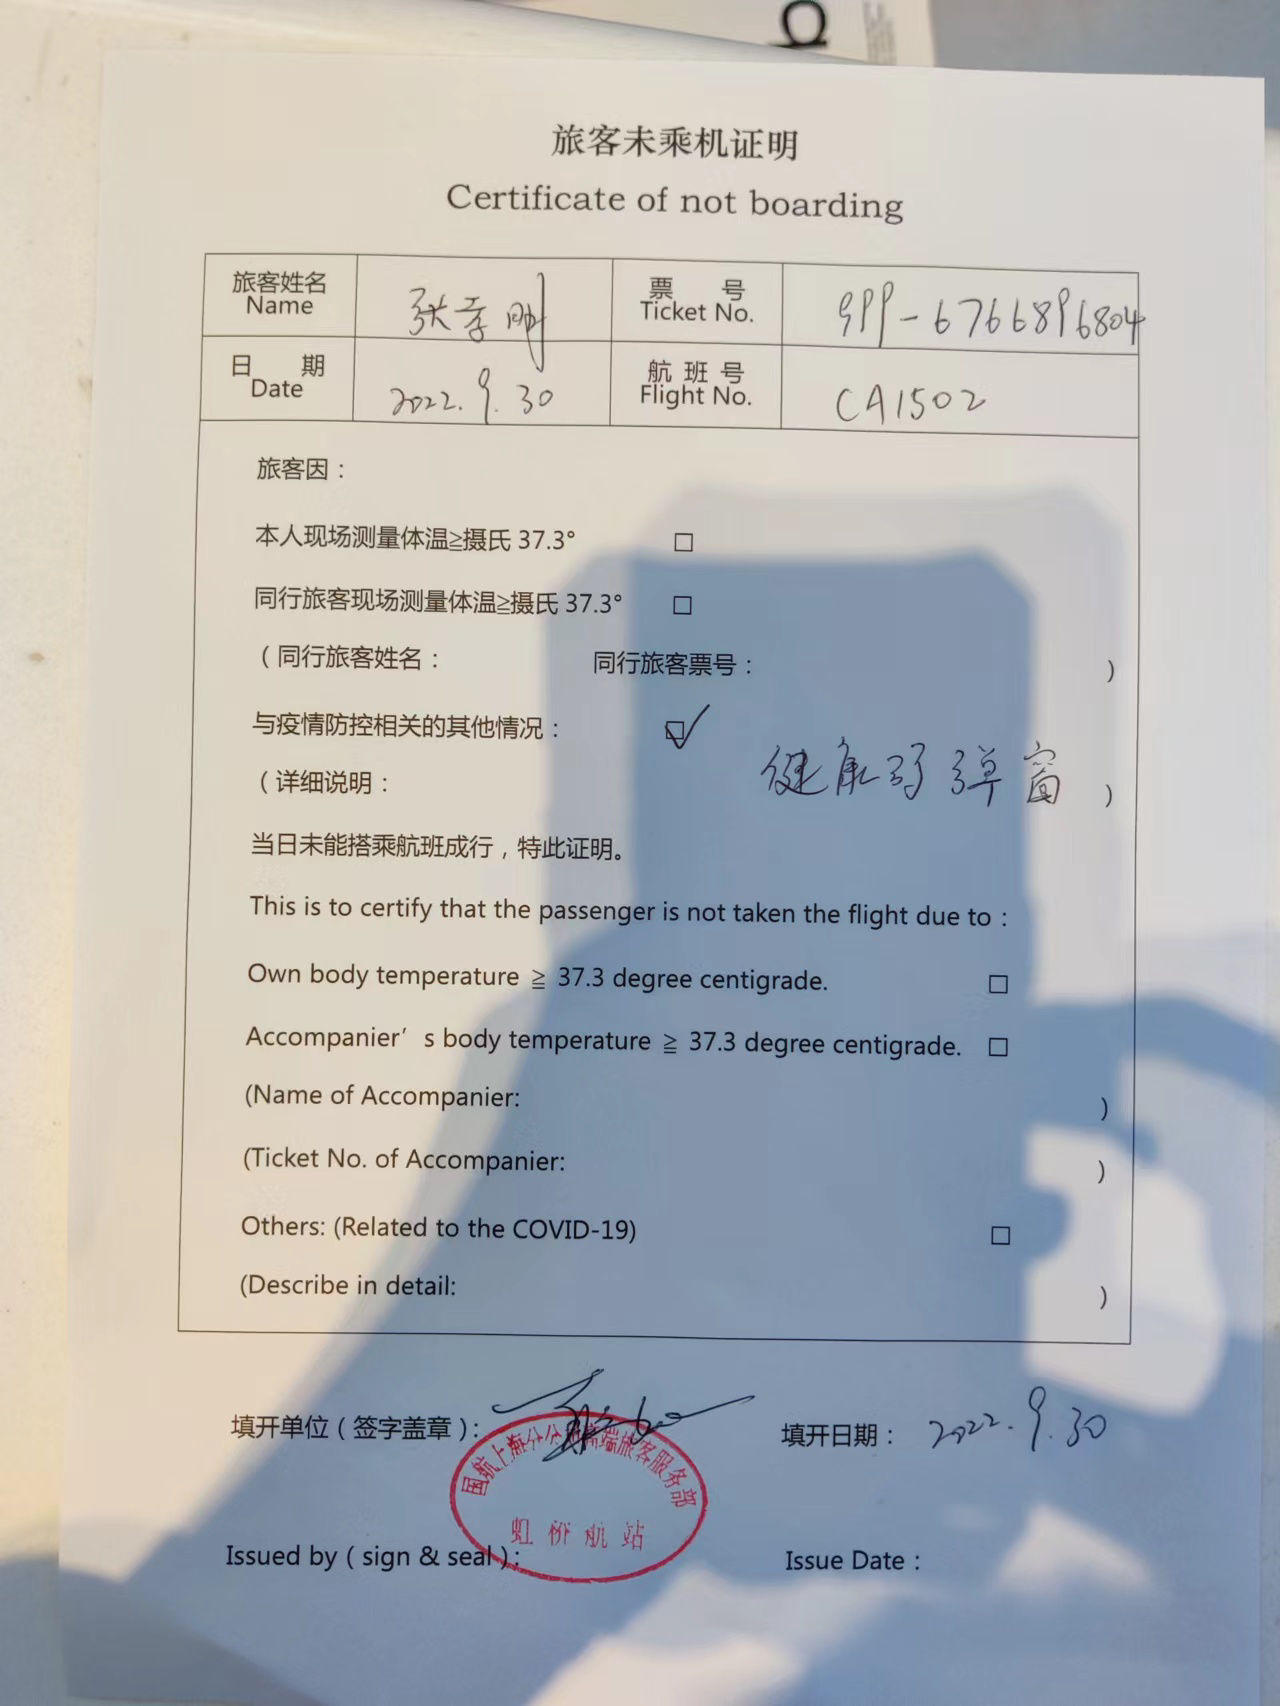 旅客未乘机证明
Certificate of not boarding
旅客姓名 张孝刚 票 号 999-6766896804
Name Ticket No.
日 期 2022.9.30 航 班 号 CA1502
Date Flight No.
旅客因：
本人现场测量体温≧摄氏 37.3° □
同行旅客现场测量体温≧摄氏 37.3° □
（同行旅客姓名： 同行旅客票号： ）
与疫情防控相关的其他情况： ☑
（详细说明： 健康码弹窗 ）
当日未能搭乘航班成行，特此证明。
This is to certify that the passenger is not taken the flight due to：
Own body temperature ≧ 37.3 degree centigrade. □
Accompanier’s body temperature ≧ 37.3 degree centigrade. □
(Name of Accompanier: )
(Ticket No. of Accompanier: )
Others: (Related to the COVID-19) □
(Describe in detail: )
填开单位（签字盖章）： 填开日期： 2022.9.30
国航上海分公司高端旅客服务部
虹桥航站
Issued by（sign & seal）： Issue Date：